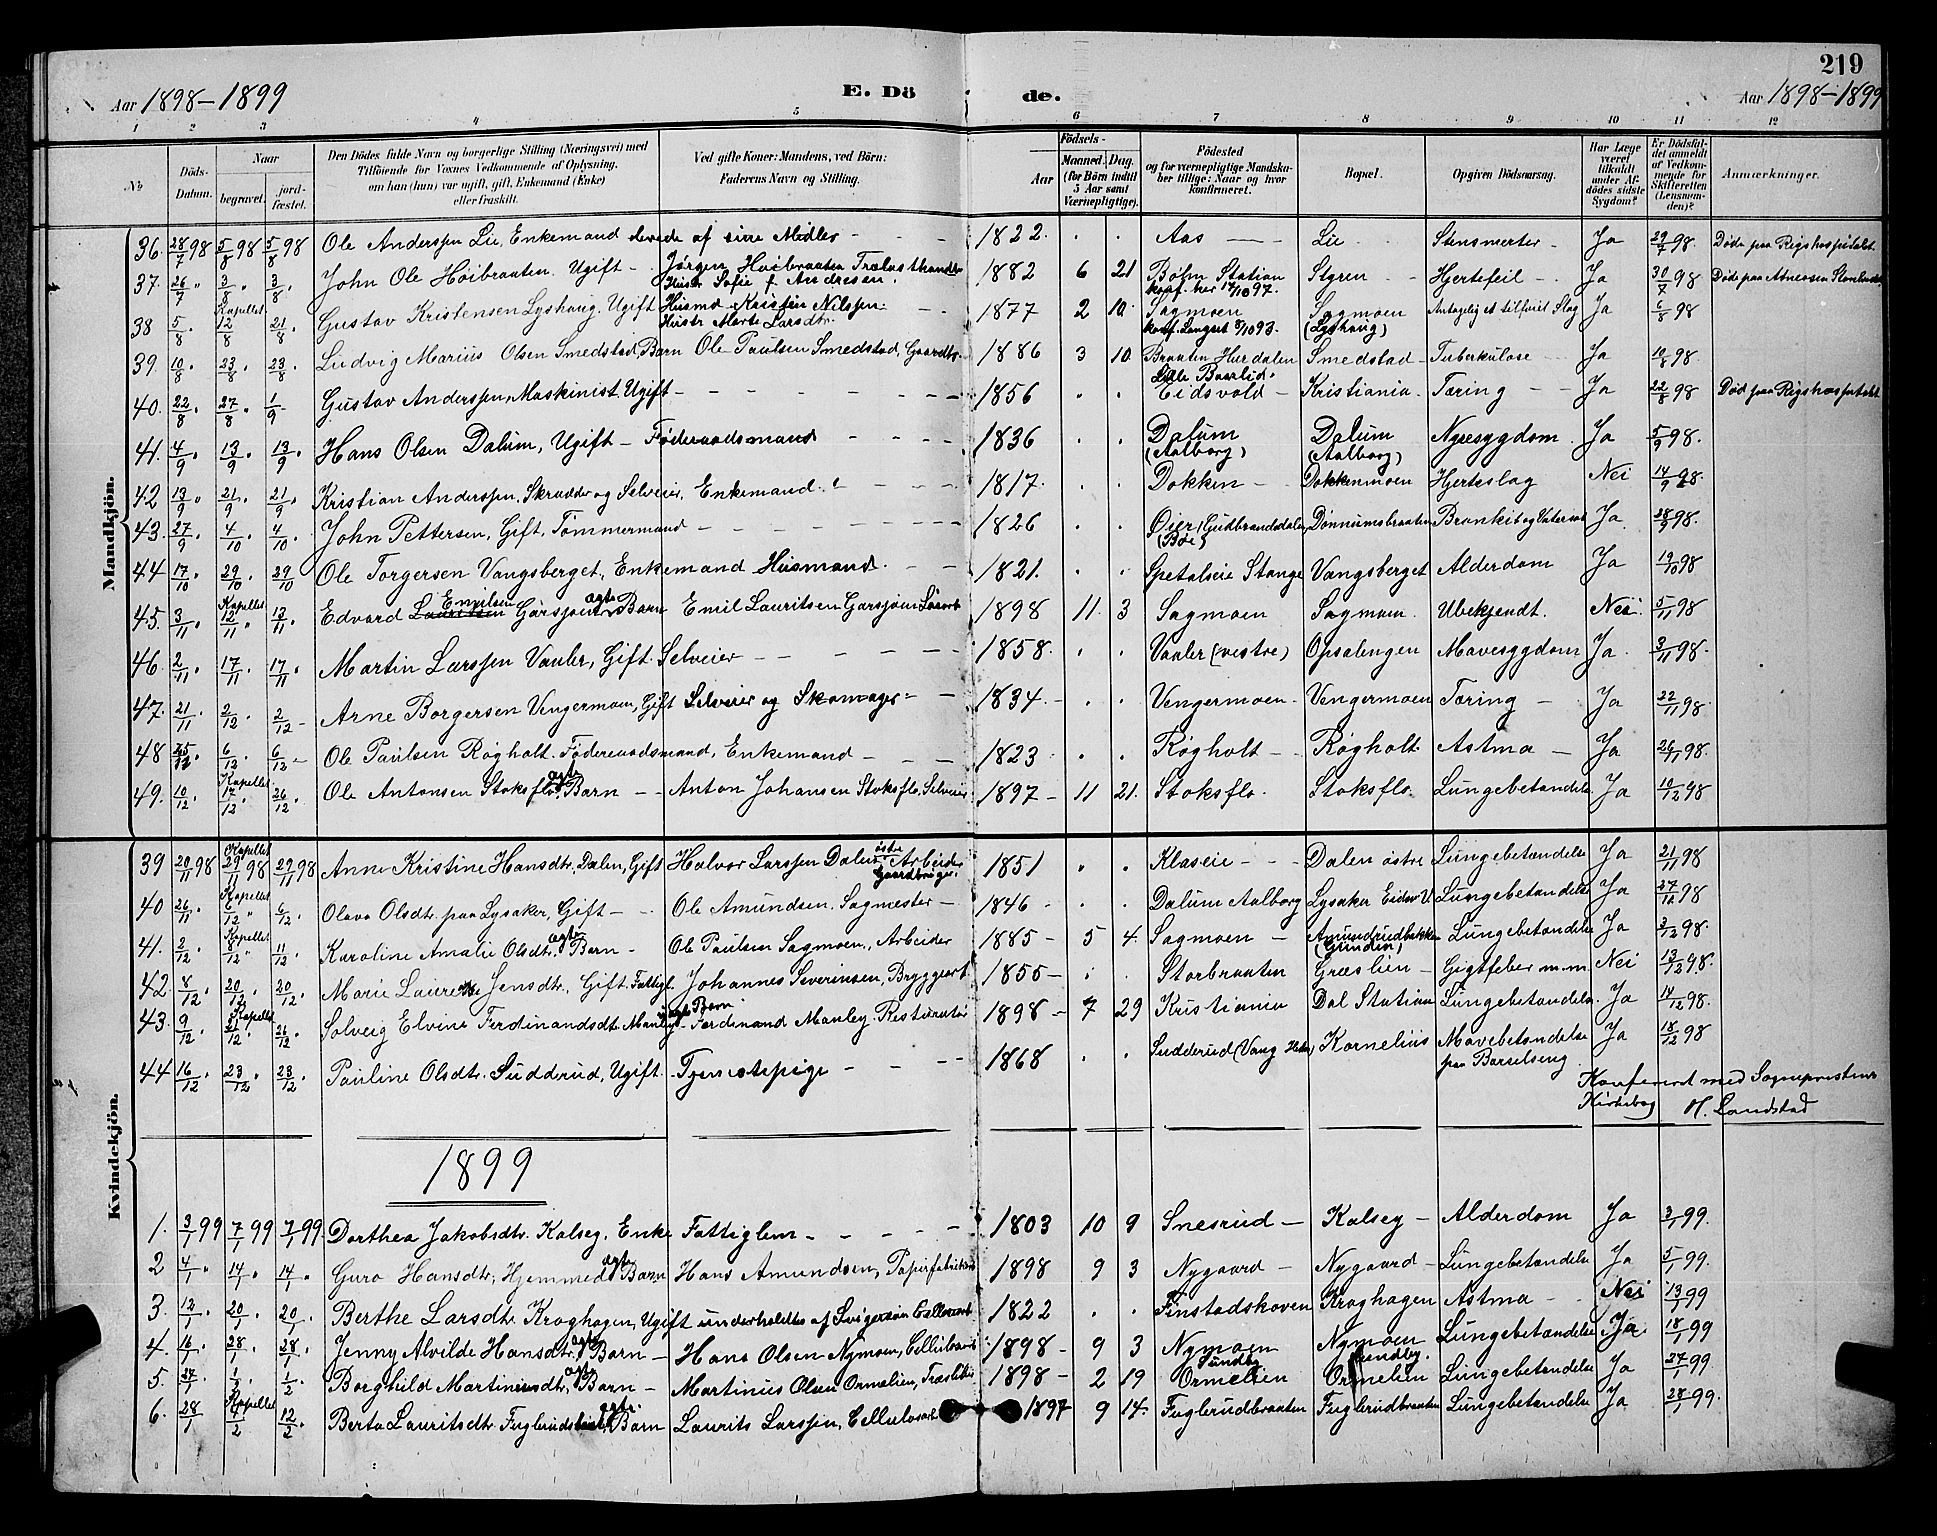 219
Aar 1898-1899 E. Dö de. Aar 1898-1899
1 2 3 4 5 6 7 8 9 10 11 12
No Döds-Datum. Naar begravet. jord-fæstet. Den Dödes fulde Navn og borgerlige Stilling (Næringsvei) med Tilföiende for Voxnes Vedkommende af Oplysning, om han (hun) var ugift, gift, Enkemand (Enke) eller fraskilt. Ved gifte Koner: Mandens, ved Börn: Faderens Navn og Stilling. Födsels- Aar Maaned. Dag. (for Börn indtil 5 Aar samt Værnepligtige). Födested og for værnepligtige Mandskaber tillige: Naar og hvor konfirmeret. Bopæl. Opgiven Dödsaarsag. Har Læge været tilkaldt under Afdödes sidste Sygdom? Er Dödsfaldet anmeldt af Vedkommende for Skifteretten (Lensmanden)? Anmærkninger.
Mandkjön.
36. 28/7 98 5/8 98 5/8 98 Ole Anderssen Lie, Enkemand levede af sine Midler - 1822. . . Aas Lie Stensmerter Ja 29/7 98. Døde paa Rigshospitalet
37. 26/7 " 3/8 . 3/8 . John Ole Høibraaten. Ugift - Jørgen Høibraaten Trælasthandler Hustr Sofie f. Andresen. 1882 6 21 Bøhn Station konf. her 17/10 97. Styren Hjertefeil - Ja 30/7 98
38 5/8 . Kapellet 12/8 . 21/8 . Gustav Kristensen Lyshaug. Ugift Husmd Kristen Nilssen. Hustr Marte Larsdtr. 1877 2 10. Sagmoen konf. Langset 8/10 93. Sagmoen (Lyshaug) Antagelig et tilføiet Slag Ja 6/8 98
39. 10/8 . 23/8 . 23/8 . Ludvig Marius Olsen Smedstad, Barn Ole Paulsen Smedstad, Gaardbr. 1886 3 10. Braaten Hurdalen Smedstad Tuberkulose Ja 10/8 98
40. 22/8 . 27/8 . 1/9 Gustav Anderssen, Maskinist, Ugift - 1856 . . Eidsvold Kristiania Tæring Ja 22/8 98 Død paa Rigshospitalet
41. 4/9 . 13/9 . 13/9 . Hans Olsen Dalum, Ugift - Føderaadsmand 1836 . . Dalum (Aalborg) Dalum (Aalborg) Nyresygdom Ja 5/9 98.
42 13/9 " 21/9 . 21/9 . Kristian Anderssen, Skrædder og Selveier, Enkemand. 1817. . . Dokken Dokkenmoen Hjerteslag Nei 14/9 98.
43. 27/9 . 4/10 . 4/10 . John Pettersen, Gift, Tømmermand 1826 . . Øier (Gudbrandsdalen (Bøe) Dønnumsbraaten Bronkit og Vatersot Ja 28/9 98.
44 17/10 . 29/10 . 29/10 Ole Torgersen Vangsberget, Enkemand Husmand. 1821. . . Spetalseie Stange Vangsberget Alderdom Ja 19/10 98
45. 3/11 . Kapellet 12/11 " 13/11 . Edvard Emilsen Gårsjøen ægte Barn Emil Lauritsen Garsjøen 1898 11. 3 Sagmoen Sagmoen. Ubekjendt. Nei. 5/11 98
46. 2/11 . 17/11 . 17/11 . Martin Larssen Vaaler, Gift. Selveier 1858. . . Vaaler (vestre) Opsalengen Mavesygdom Ja. 3/11 98.
47. 21/11 . 2/12 . 2/12 - Arne Borgersen Vengermoen, Gift Selveier og Skomager 1834. . . Vengermoen Vengermoen Tæring Ja 22/11 98.
48 25/12 6/12 . 6/12 - Ole Paulsen Røgholt. Føderaadsmand, Enkemand 1823 . . Røgholt Røgholt Astma Ja 26/11 98.
49. 10/12 . Kapellet 17/12 . 26/12 . Ole Antonsen Stoksflo ægte Barn Anton Johansen Stoksflo, Selveier 1897 11 21. Stoksflo Stoksflo. Lungebetændelse Ja 10/12 98
Kvindekjön.
39 20/11 98 Kapellet 29/11 98 29/11 98 Anne Kristine Hansdtr. Dalen, Gift Halvor Larssen Dalen østre Arbeider Gaardbruger. 1851 . . Klaseie Dalen østre Lungebetændelse Ja 21/11 98
40 26/11 . Kapellet 6/12 " 6/12 . Olava Olsdtr. paa Lysaker, Gift - Ole Amundsen, Sagmester 1846 . . Dalum Aalborg Lysaker Eidsv V Lungebetændelse Ja 27/12 98
41. 2/12 . Kapellet 5/12 " 11/12 . Karoline Amalie Olsdtr. ægte Barn - Ole Paulsen Sagmoen, Arbeider 1885 5 4. Sagmoen Amundrudbakken Lungebetændelse Ja 3/12 98.
42. 8/12 . 20/12 . 20/12 . Marie Laurentze Jensdtr., Gift. Fattigl. Johannes Severinsen, Bryggearb. 1855 . . Storbraaten Græslien Gigtfeber m.m. Nei 13/12 98.
43. 9/12 . Kapellet 21/12 . 26/12 . Solveig Elvine Ferdinandsdtr. Manley uægte Barn Ferdinand Manley. Restauratør 1898 7 29 Kristiania Dal Station Lungebetændelse. Ja 14/12 98.
44 16/12 . 23/12 . 23/12 . Pauline Olsdtr. Sudderud, Ugift. Tjenestepige 1868 . . Sudderud (Vang Hdm) Kornelius Mavebetændelse paa Barselseng Ja 18/12 98
Konfereret med Sognepræstens
Kirkebog H. Landstad
1899
1. 3/1 99 7/1 99 7/1 99 Dorthea Jakobsdtr. Kalseg, Enke Fattiglem 1803 10 9 Snesrud Kalseg Alderdom Ja 3/1 99.
2 4/1 . 14/1 . 14/1 . Guro Hansdtr, Hjemmed. ægte Barn Hans Amundsen, Papirfabrikarb 1898 9 3 Nygaard Nygaard Lungebetændelse Ja 5/1 99.
3. 12/1 . 20/1 . 20/1 . Berthe Larsdtr. Kroghagen, Ugift underholdtes af Svigersøn 1822 . . Finstadskoven Kroghagen Astma Nei 13/1 99
4. 16/1 . 28/1 . 28/1 . Jenny Alvilde Hansdtr. ægte Barn Hans Olsen Nymoen, Cellulosearb 1898 9 3 Nymoen Nymoen Lungebetændelse Ja 18/1 99
5. 27/1 . 1/2 . 1/2 . Borghild Martinusdtr, ægte Barn Martinus Olsen Ormelien, 1898 2 19 Sundby Ormelien Sundby. Ormelien Lungebetændelse Ja 27/1 99.
6. 28/1 Kapellet 4/2 12/2 . Berta Lauritsdtr Fuglerudbraaten, ægte Barn Laurits Larssen, Cellulosearb 1897 9 14. Fuglerudbraaten Fuglerudbraaten Lungebetændelse Ja 28/1 99.